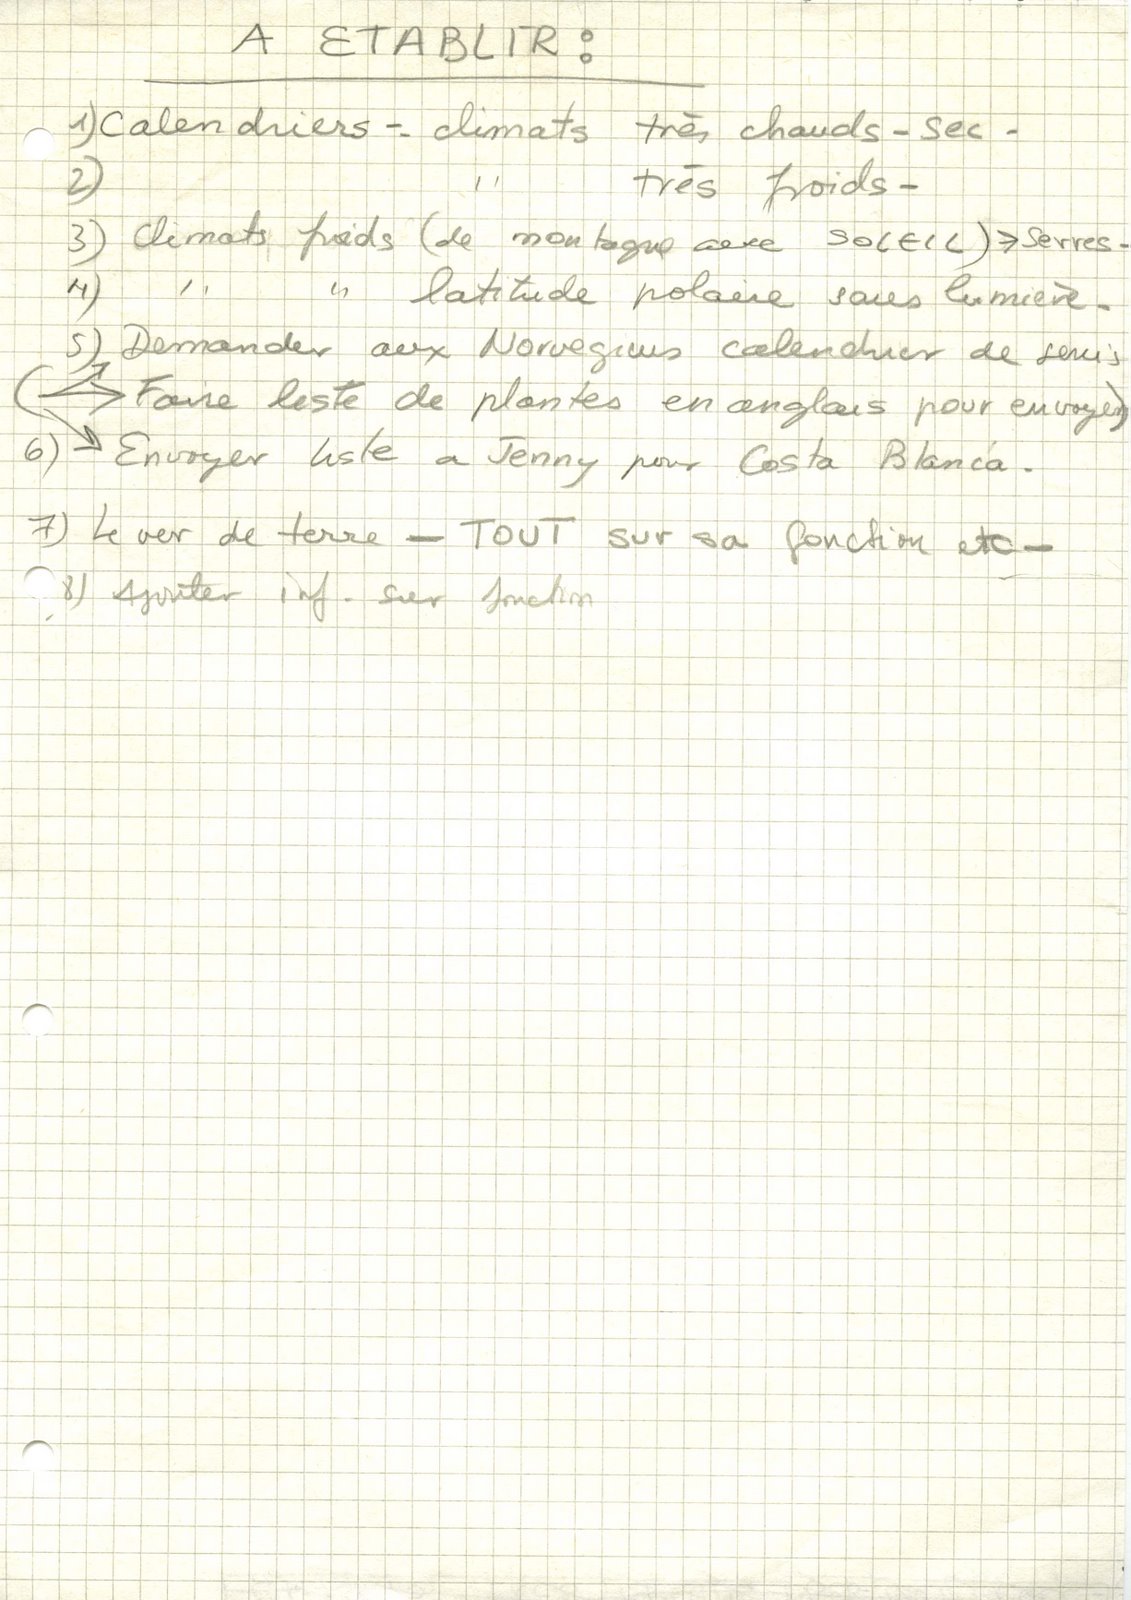 A ETABLIR :
1) Calendriers - climats très chauds - sec -
2) " très froids -
3) Climats froids (de montagne avec SOLEIL) → Serres -
4) " " latitude polaire sans lumière -
5) Demander aux Norvegiens calendrier de semis
Faire liste de plantes en anglais pour envoyer)
6) → Envoyer liste a Jenny pour Costa Blanca.
7) Le ver de terre — TOUT sur sa fonction etc -
8) Ajouter inf. sur fonction